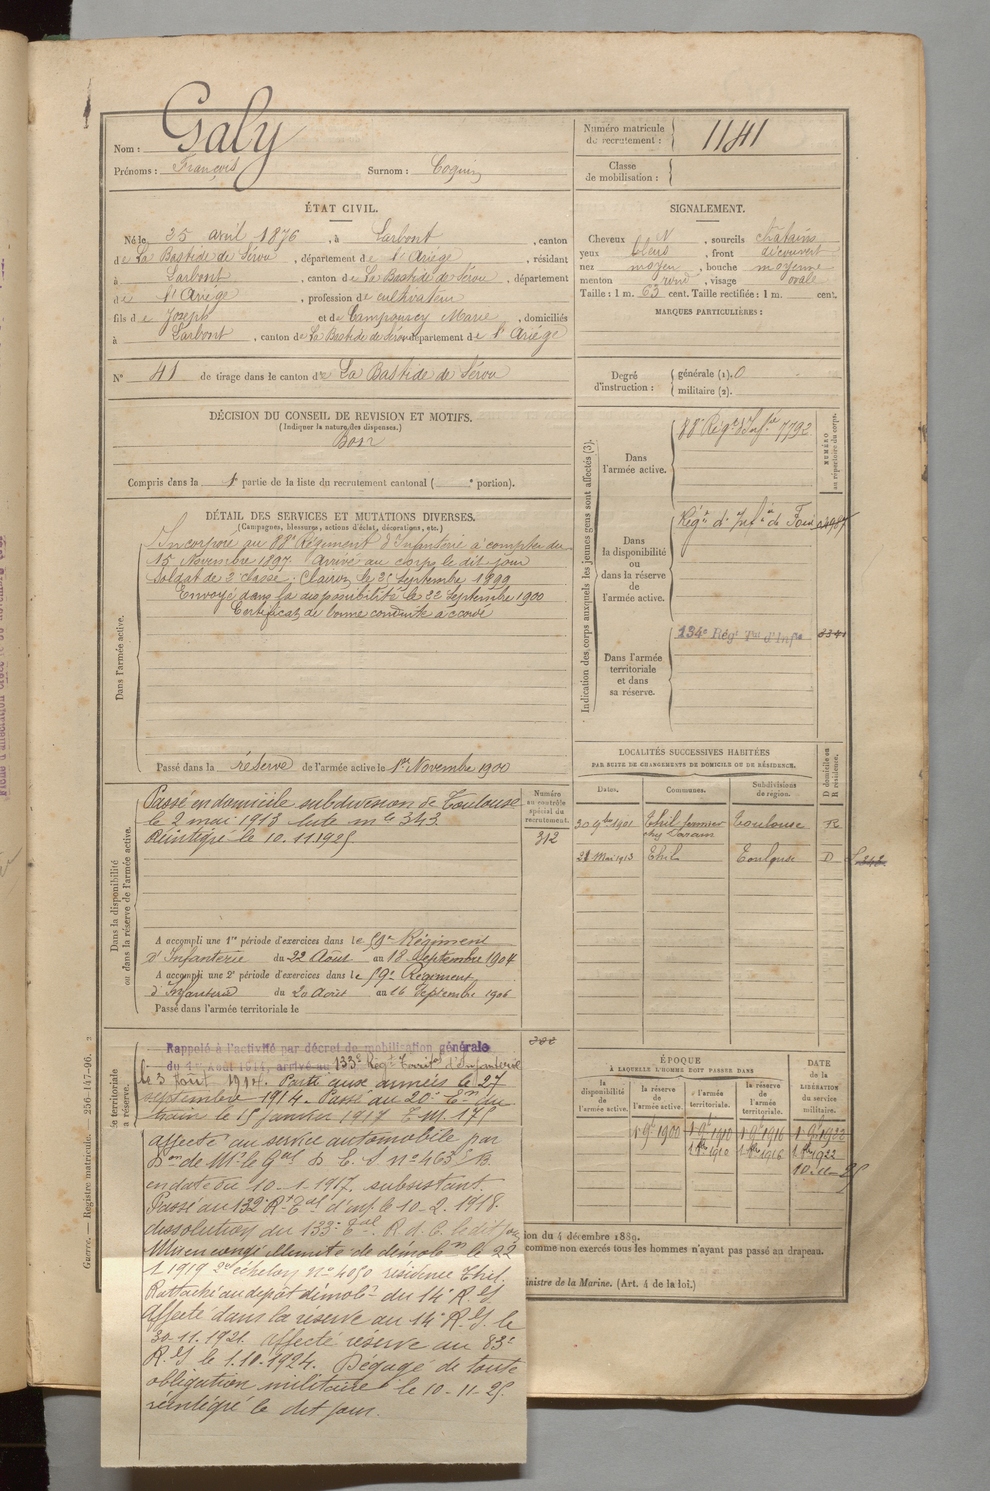 Nom : Galy
Prénoms : François Surnom : Coquin
Numéro matricule du recrutement : 1141
Classe de mobilisation :
ÉTAT CIVIL.
Né le 25 avril 1876, à Larbont, canton
de La Bastide de Sérou, département de l'Ariége, résidant
à Larbont, canton de La Bastide de Sérou, département
de l'Ariége, profession de cultivateur
fils de Joseph et de Marie, domiciliés
à Larbont, canton de La Bastide de Sérou, département de l'Ariége
N° 41 de tirage dans le canton de La Bastide de Sérou
SIGNALEMENT.
Cheveux N, sourcils châtains
yeux bleus, front découvert
nez moyen, bouche moyenne
menton rond, visage ovale
Taille : 1 m. 63 cent. Taille rectifiée : 1 m. cent.
MARQUES PARTICULIÈRES :
Degré d'instruction : générale (1). 0
militaire (2).
DÉCISION DU CONSEIL DE REVISION ET MOTIFS.
(Indiquer la nature des dispenses.)
Bon
Compris dans la 1e partie de la liste du recrutement cantonal ( e portion).
DÉTAIL DES SERVICES ET MUTATIONS DIVERSES.
(Campagnes, blessures, actions d'éclat, décorations, etc.)
Dans l'armée active.
Incorporé au 88e Régiment d'Infanterie à compter du
15 Novembre 1897. Arrivé au corps le dit jour
Soldat de 2e classe. Clairon le 25 Septembre 1899
Envoyé dans la disponibilité le 22 Septembre 1900
Certificat de bonne conduite accordé
Passé dans la réserve de l'armée active le 1er Novembre 1900
Indication des corps auxquels les jeunes gens sont affectés (3).
NUMÉRO au répertoire du corps.
Dans l'armée active.
88e Régt d'Infie 7792
Dans la disponibilité ou dans la réserve de l'armée active.
Régt d'Infie de Foix
Dans l'armée territoriale et dans sa réserve.
134e Régt Tal d'Infie
LOCALITÉS SUCCESSIVES HABITÉES
PAR SUITE DE CHANGEMENTS DE DOMICILE OU DE RÉSIDENCE.
Dates. Communes. Subdivisions de région. D domicile ou R résidence.
30 9bre 1901 Thil fermier chez Toulouse R
21 Mai 1913 Thil Toulouse D
Dans la disponibilité ou dans la réserve de l'armée active.
Numéro au contrôle spécial du recrutement.
312
Passé en domicile subdivision de Toulouse
le 2 mai 1913 liste n° 343
Réintégré le 10.11.1925.
A accompli une 1re période d'exercices dans le 59e Régiment
d'Infanterie du 22 Août au 18 Septembre 1904
A accompli une 2e période d'exercices dans le 59e Régiment
d'Infanterie du 20 Août au 16 Septembre 1906
Passé dans l'armée territoriale le
Rappelé à l'activité par décret de mobilisation générale
du 1er Août 1914, arrivé au 133e Régt Territ d'Infanterie
le 3 Août 1914. Parti aux armées le 27
septembre 1914. Passé au 20e Eon du
train le 15 Janvier 1917 T.M. 175
affecté au service automobile par
Don de Mr le Gal D.E.S n° 463 S/B.
en date du 10-1-1917. subsistant.
Passé au 132e Rt Eal d'inf. le 10.2.1918.
dissolution du 133e Eal. R.d.C. le dit jour
Mis en congé illimité de démobon le 22
1.1919 2e échelon n° 4050 résidence Thil.
Rattaché au dépôt démobr du 14e R.I.
Affecté dans la réserve au 14e R.I. le
30-11.1921. affecté réserve au 83e
R.I. le 1.10.1924. Dégagé de toute
obligation militaire le 10-11-25.
réintégré le dit jour.
ÉPOQUE
À LAQUELLE L'HOMME DOIT PASSER DANS
la disponibilité de l'armée active. la réserve de l'armée active. l'armée territoriale. la réserve de l'armée territoriale.
DATE de la LIBÉRATION du service militaire.
1 9bre 1900 1 9bre 1910 1 9bre 1916 1 9bre 1922
1 9bre 1910 1 9bre 1916 1 9bre 1922
10-11-25
ion du 4 décembre 1889.
comme non exercés tous les hommes n'ayant pas passé au drapeau.
inistre de la Marine. (Art. 4 de la loi.)
Guerre. — Registre matricule. 256-147-96.